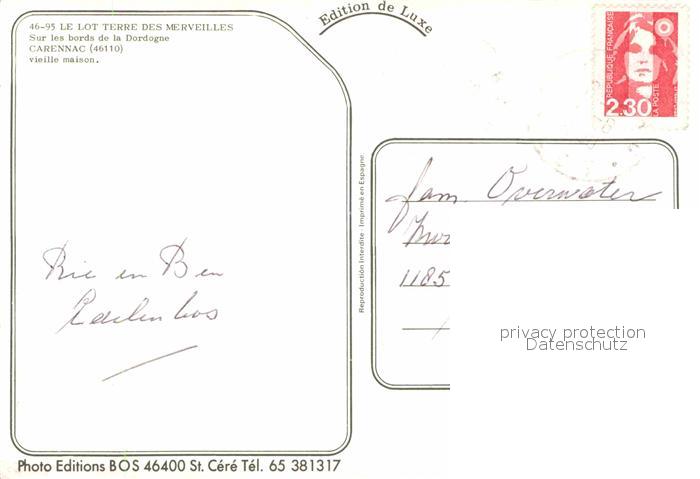 46-95 LE LOT TERRE DES MERVEILLES
Sur les bords de la Dordogne
CARENNAC (46110)
vieille maison.
Edition de Luxe
RÉPUBLIQUE FRANÇAISE
2.30
LA POSTE
Reproduction Interdite · Imprimé en Espagne.
fam. Overwater
1185
Rie en Ben
privacy protection
Datenschutz
Photo Editions BOS 46400 St. Céré Tél. 65 381317